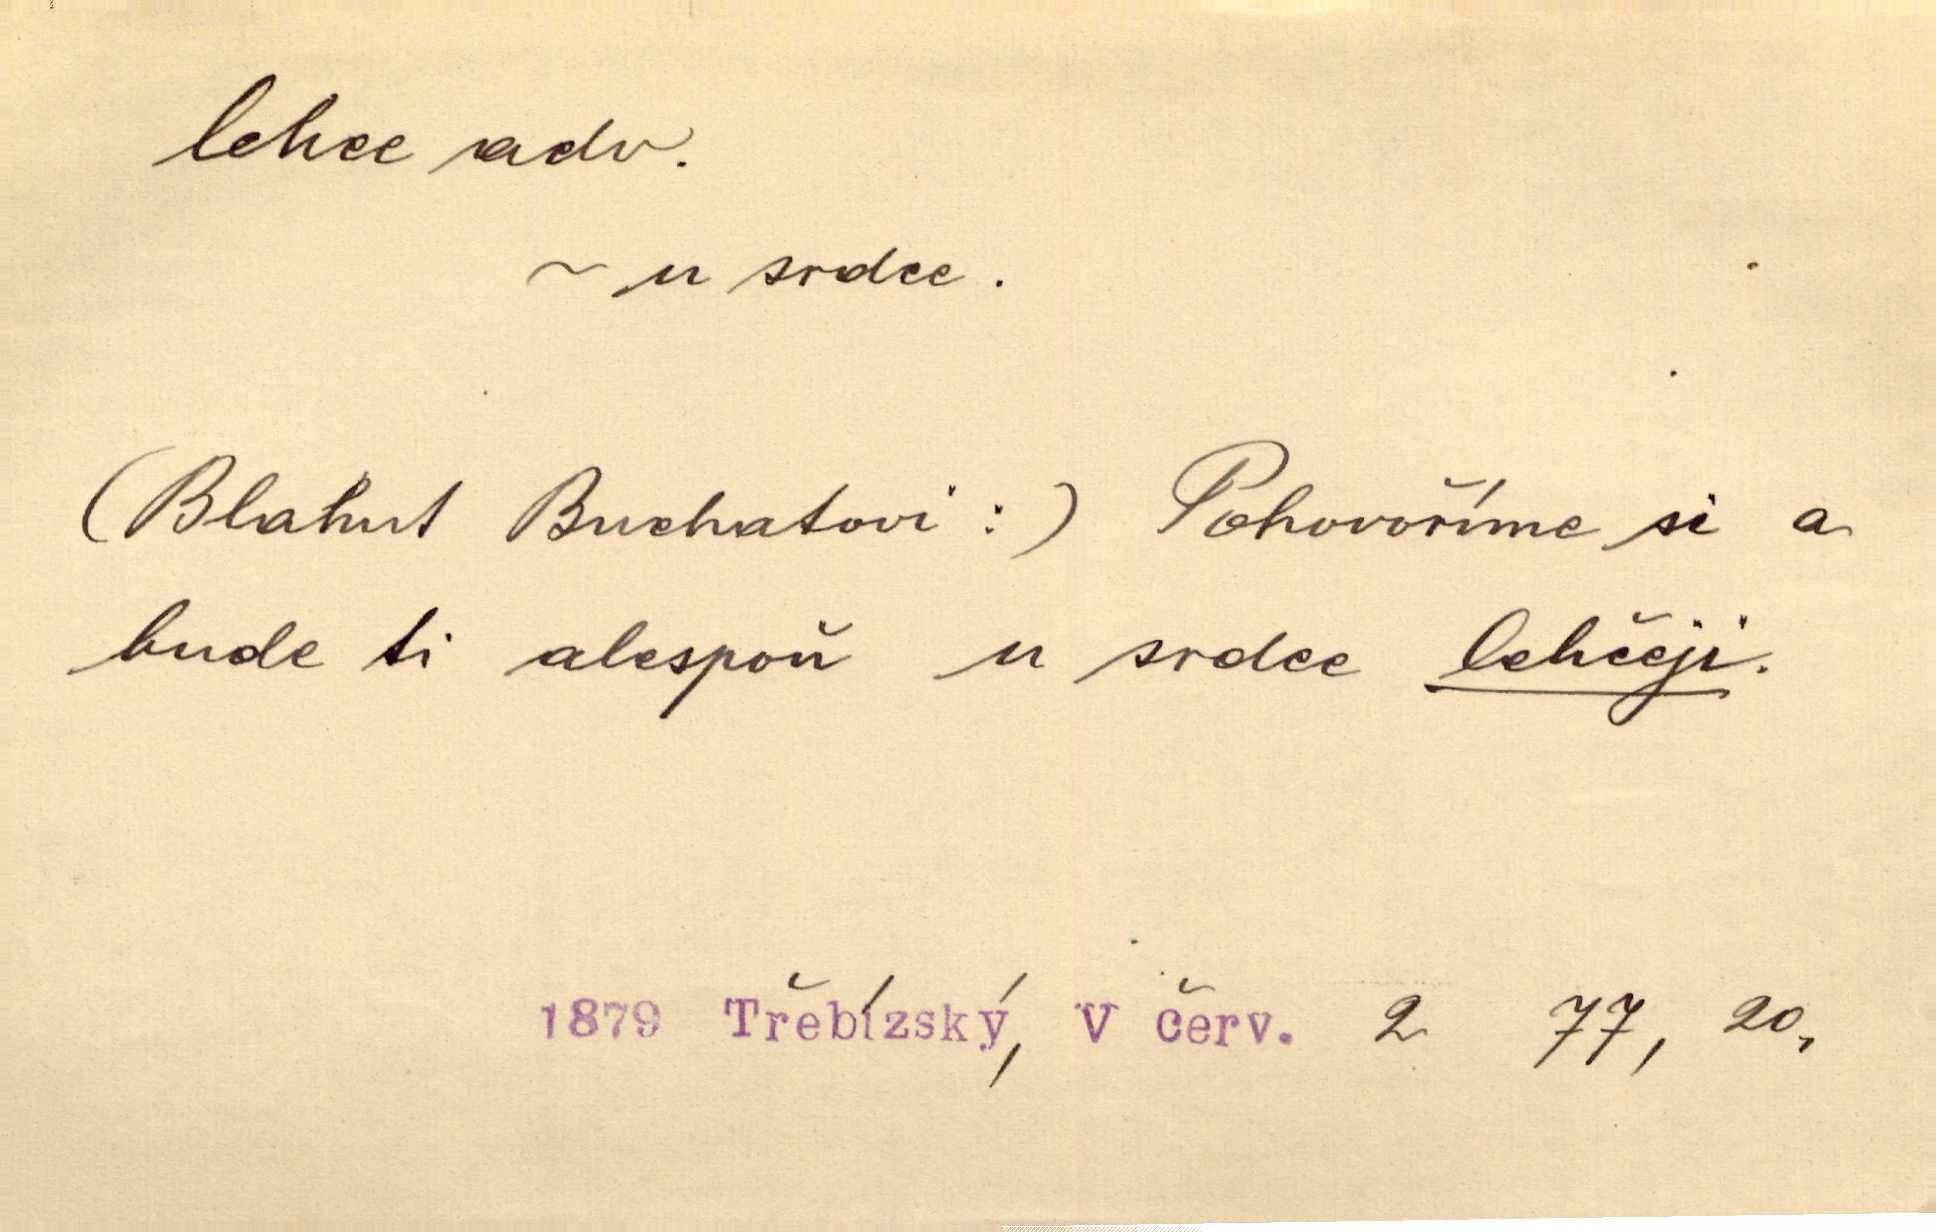 lehce adv.
~ u srdce.
(Blahut Buchatovi:) Pohovoříme si a
bude ti alespoň u srdce lehčeji.
1879 Třebízský, V červ. 2 77, 20,